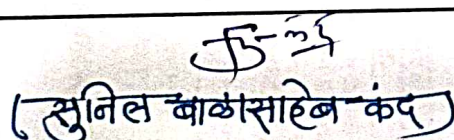 (सुनिल बाळासाहेब कंद)